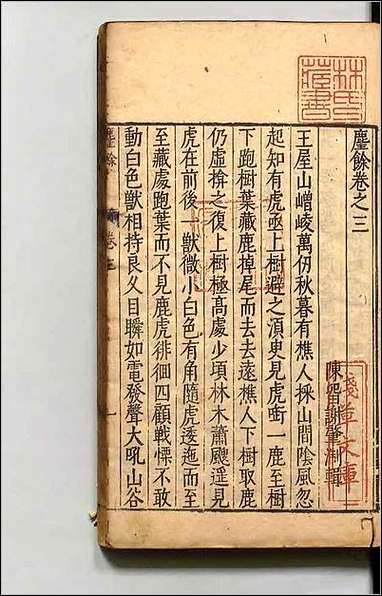 林氏藏書
麈餘卷之三
陳留謝肇淛輯
淺草文庫
王屋山嶒崚萬仞秋暮有樵人採山間陰風忽
起知有虎亟上樹避之湏臾見虎啣一鹿至樹
下跑樹葉藏鹿掉尾而去去遠樵人下樹取鹿
仍虛揜之復上樹極髙處少頃林木蕭颼遥見
虎在前後一獸微小白色有角隨虎逶迤而至
至藏處跑葉而不見鹿虎徘徊四顧戰慄不敢
動白色獸相持良久目瞬如電發聲大吼山谷
麈餘 卷三 一